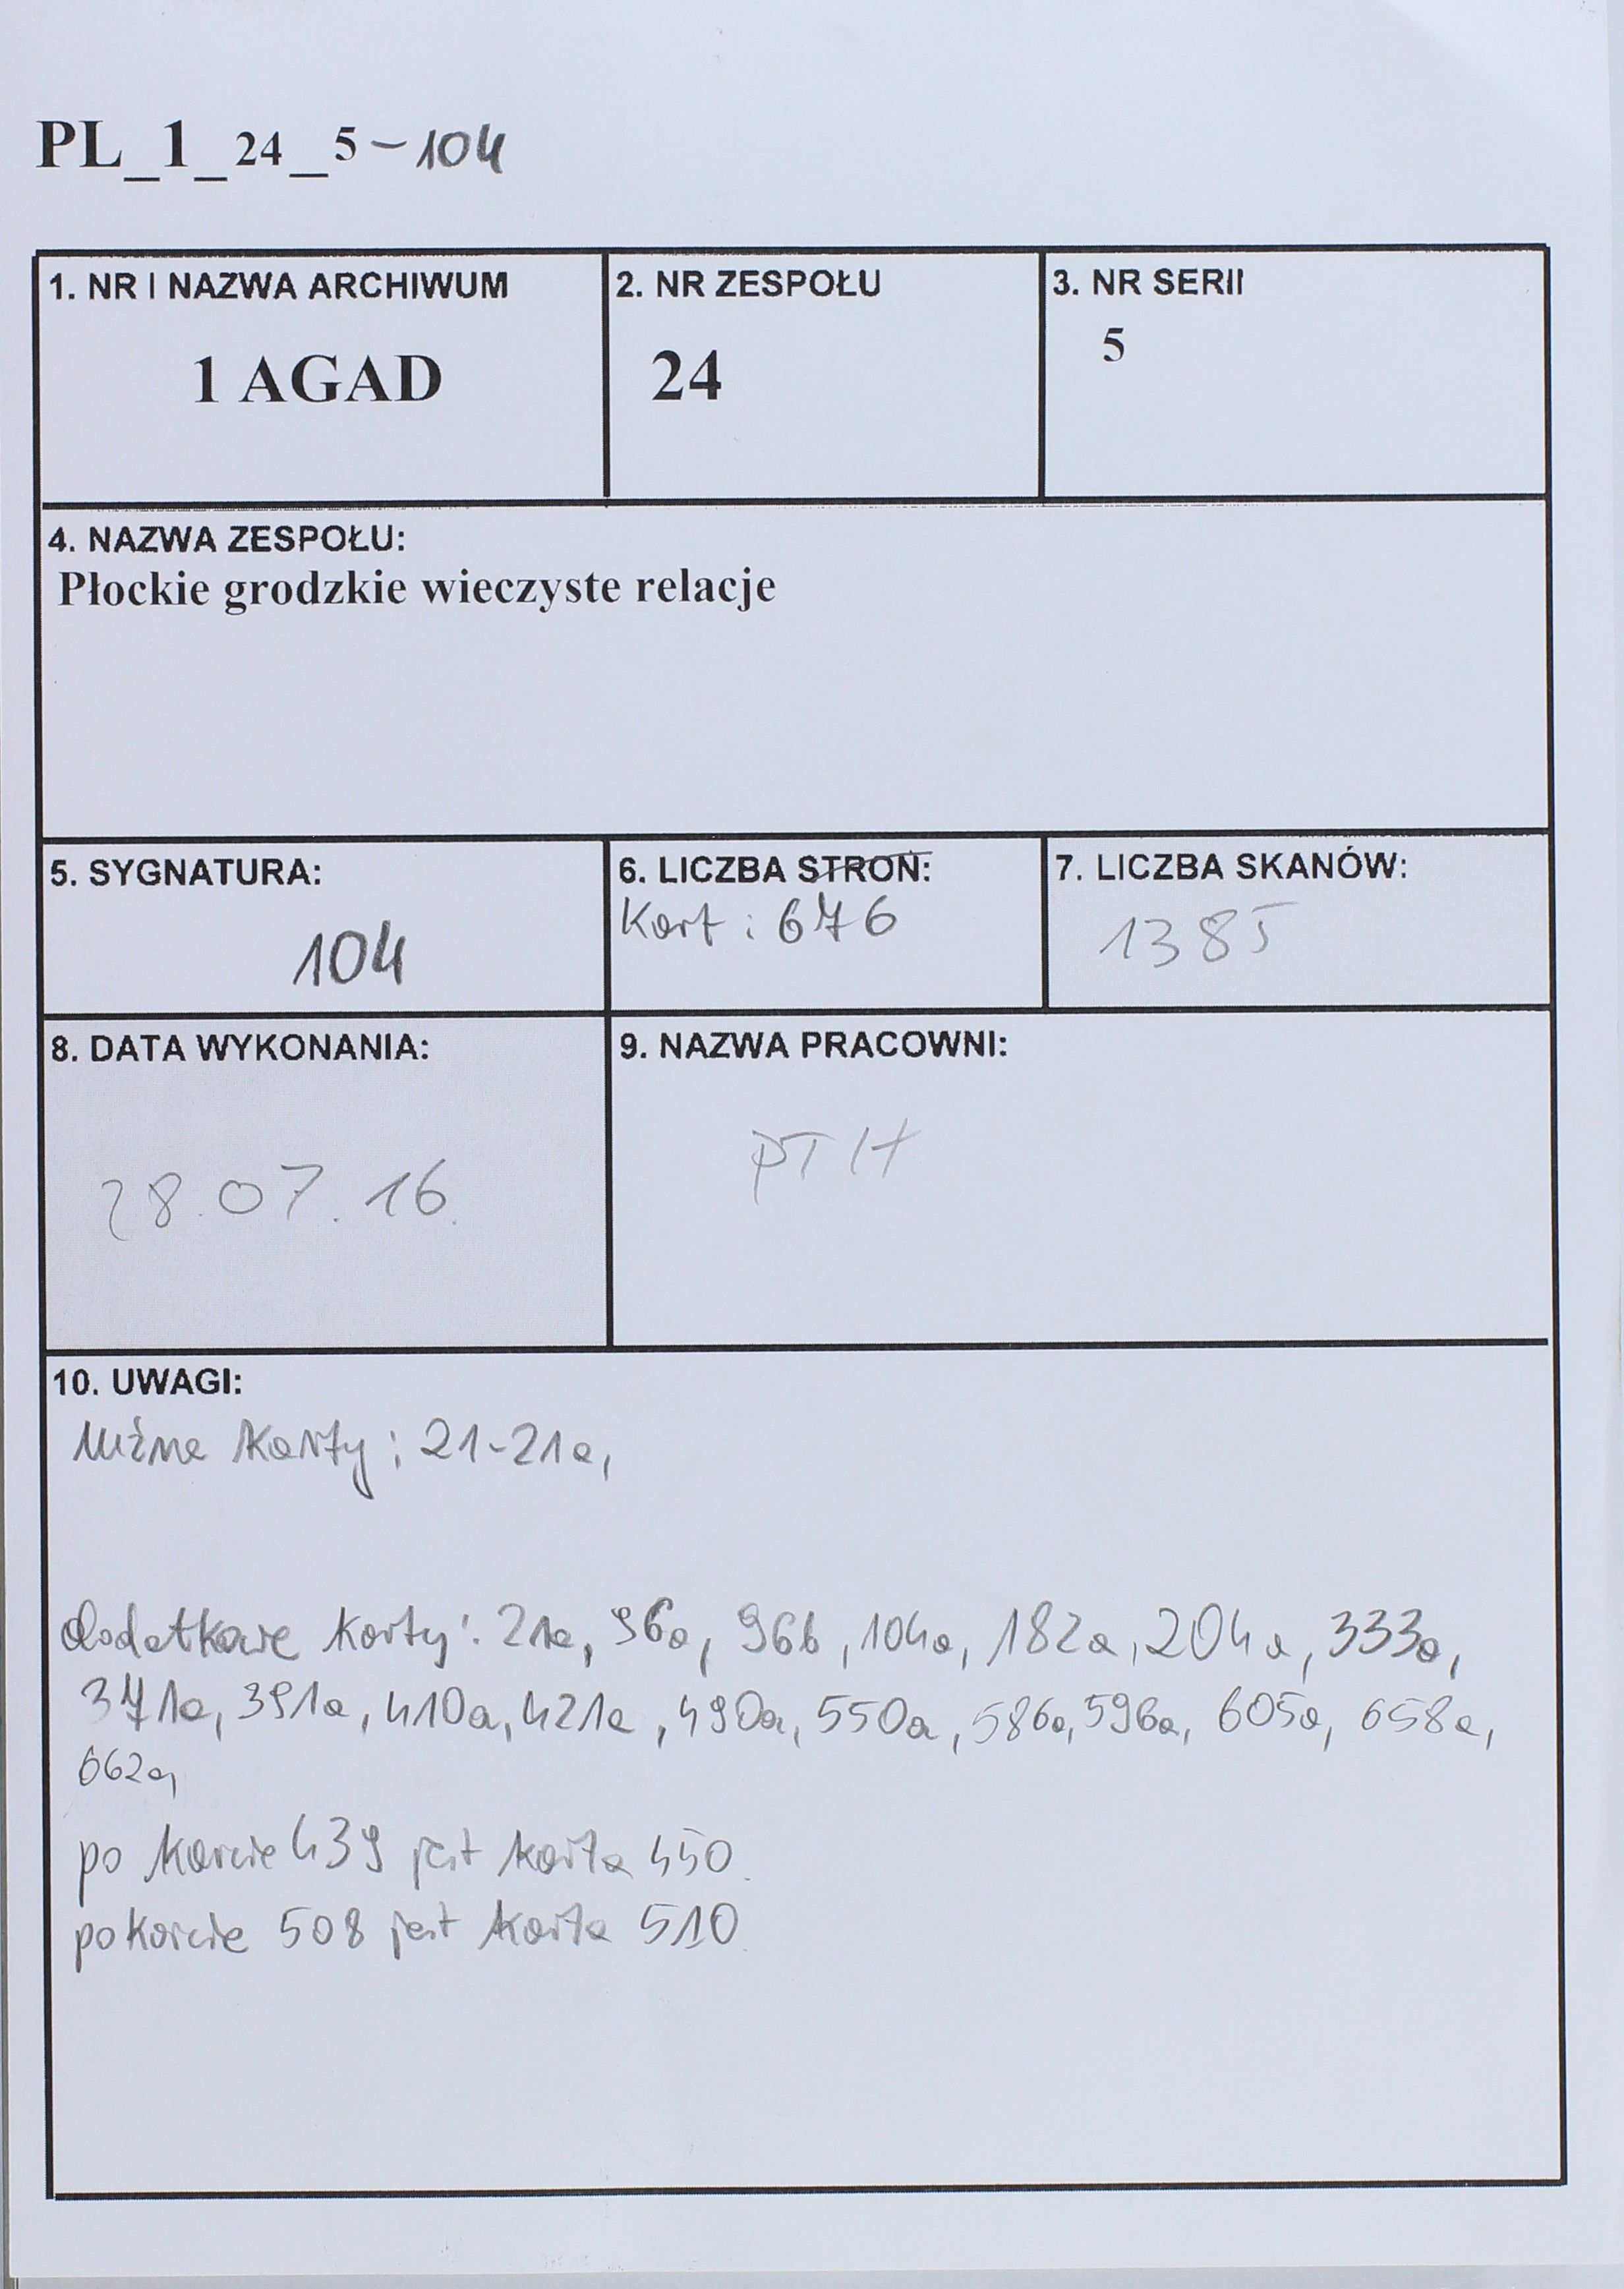 PL_1_24_5-104
1. NR I NAZWA ARCHIWUM
1 AGAD
2. NR ZESPOŁU
24
3. NR SERII
5
4. NAZWA ZESPOŁU:
Płockie grodzkie wieczyste relacje
5. SYGNATURA:
104
6. LICZBA STRON:
Kart: 676
7. LICZBA SKANÓW:
1385
8. DATA WYKONANIA:
28.07.16.
9. NAZWA PRACOWNI:
PTH
10. UWAGI:
luźne karty: 21-21a,
dodatkowe karty: 21a, 96a, 96b, 104a, 182a, 204a, 333a,
371a, 391a, 410a, 421a, 490a, 550a, 586a, 596a, 605a, 658a,
662a,
po karcie 439 jest karta 450.
po karcie 508 jest karta 510.